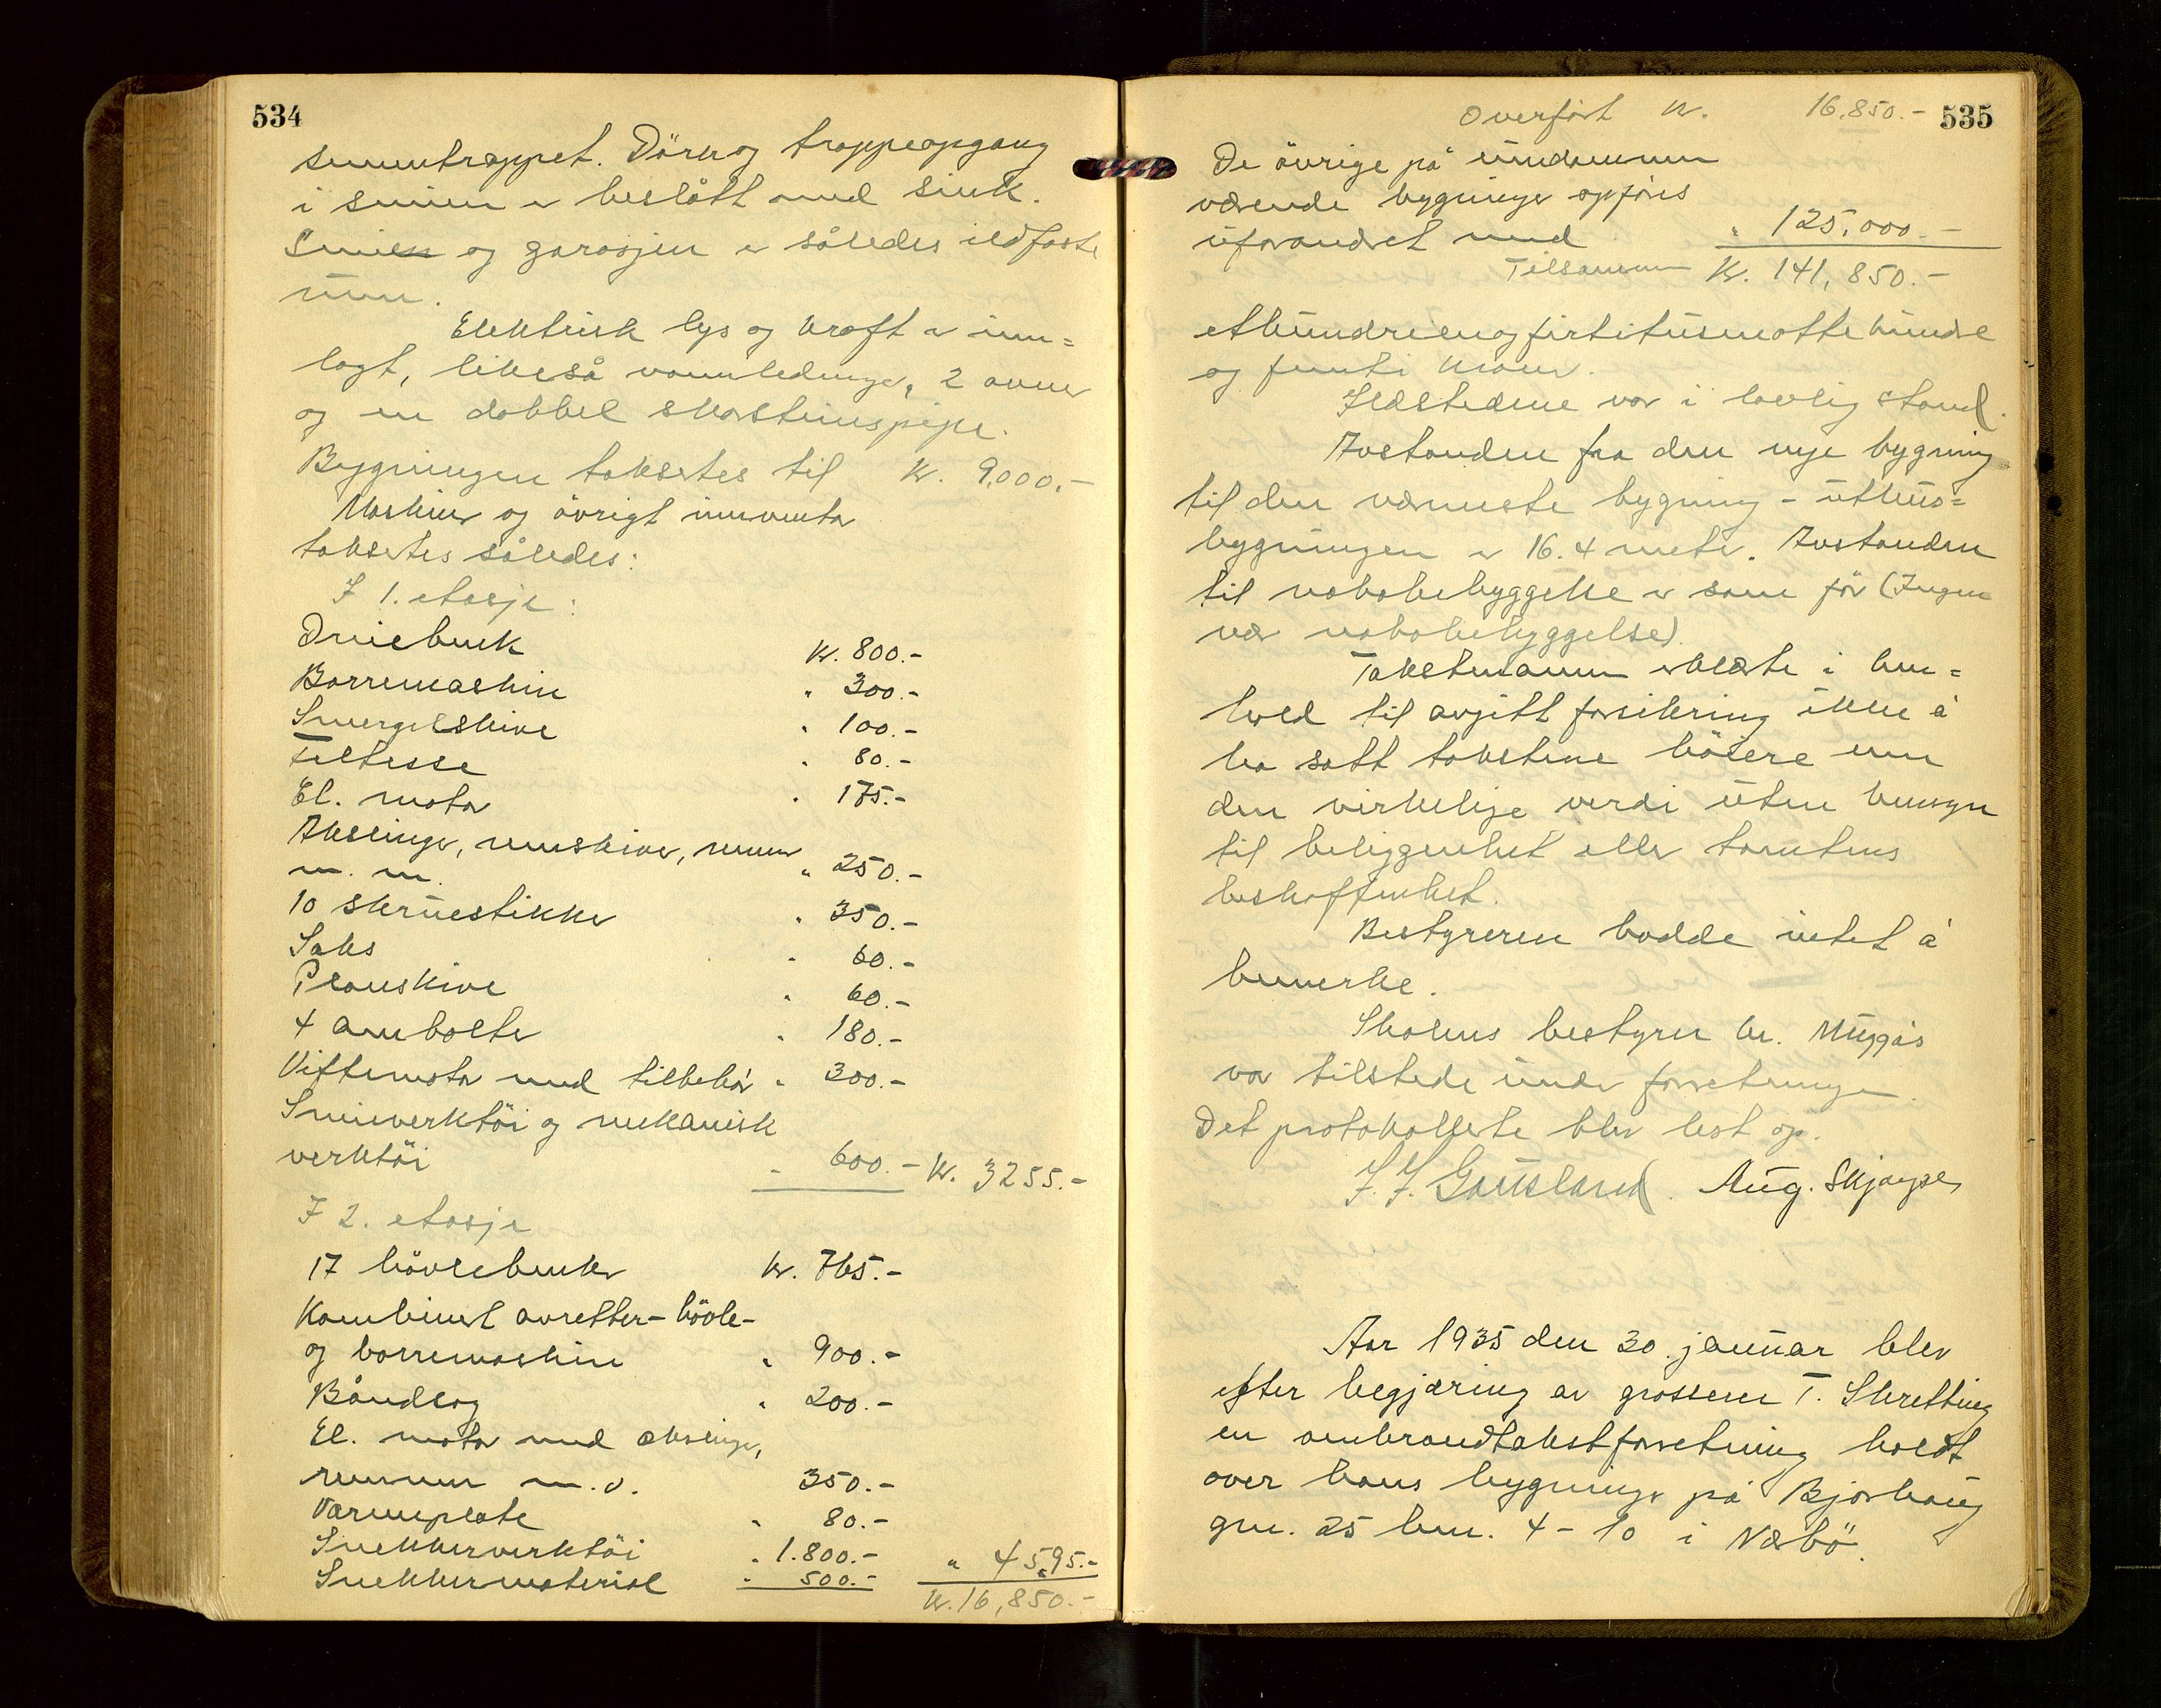 534
sementrappet. Dörer og trappeopgang
i smien er beslått med sink.
Smien og garasjen er således ildfaste
rum.
Elektrisk lys og kraft er inn=
lagt, likeså vannledninger, 2 ovner
og en dobbel skorsteinspipe.
Bygningen takseres til Kr. 9.000.-
Maskiner og övrigt inventar
takseres således:
I 1. etasje:
Dreiebenk Kr. 800.-
Borremaskin " 300.-
Smergelskive " 100.-
Feltesse " 80.-
El. motor " 175.-
Akslinger, remskiver, remmer
m. m. " 250.-
10 skruestikker " 350.-
Saks " 60.-
Planskive " 60.-
4 ambolter " 180.-
Viftemotor med tilbehör " 300.-
Smieverktöi og mekanisk
verktöi " 600.- Kr. 3255.-
I 2. etasje
17 hövlebenker Kr. 765.-
Kombinert avretter- hövle-
og borremaskin " 900.-
Båndsag " 200.-
El. motor med akslinger,
remmer m. v. 350.-
Varmeplate " 80.-
Snekkerverktöi " 1.800.- " 4595.-
Snekkermateriel " 500.- Kr. 16,850.-
535
Overfört Kr. 16.850.-
De övrige på eiendommen
værende bygninger opföres
uforandret med " 125.000.-
Tilsammen Kr. 141,850.-
etthundreenogfirtitusenottehundre
og femti kroner.
Ildstedene var i lovlig stand.
Avstanden fra den nye bygning
til den nærmeste bygning - uthus=
bygningen er 16.4 meter. Avstanden
til nabobebyggelse er som för (Ingen
nær nabobebyggelse).
Takstmennene erklærte i hen=
hold til avgitt forsikring ikke å
ha satt takstene höiere enn
den virkelige verdi uten hensyn
til beliggenhet eller tomtens
beskaffenhet.
Bestyreren hadde intet å
bemerke.
Skolens bestyrer hr. Muggås
var tilstede under forretningen.
Det protokollerte blev lest op.
J. J. Gausland. Aug. Skjæyse
Aar 1935 den 30. januar blev
efter begjæring av grosserer T. Skretting
en ombrandtakstforretning holdt
over hans bygninger på Bjorhaug
gnr. 25 bnr. 4 - 10 i Nærbö.